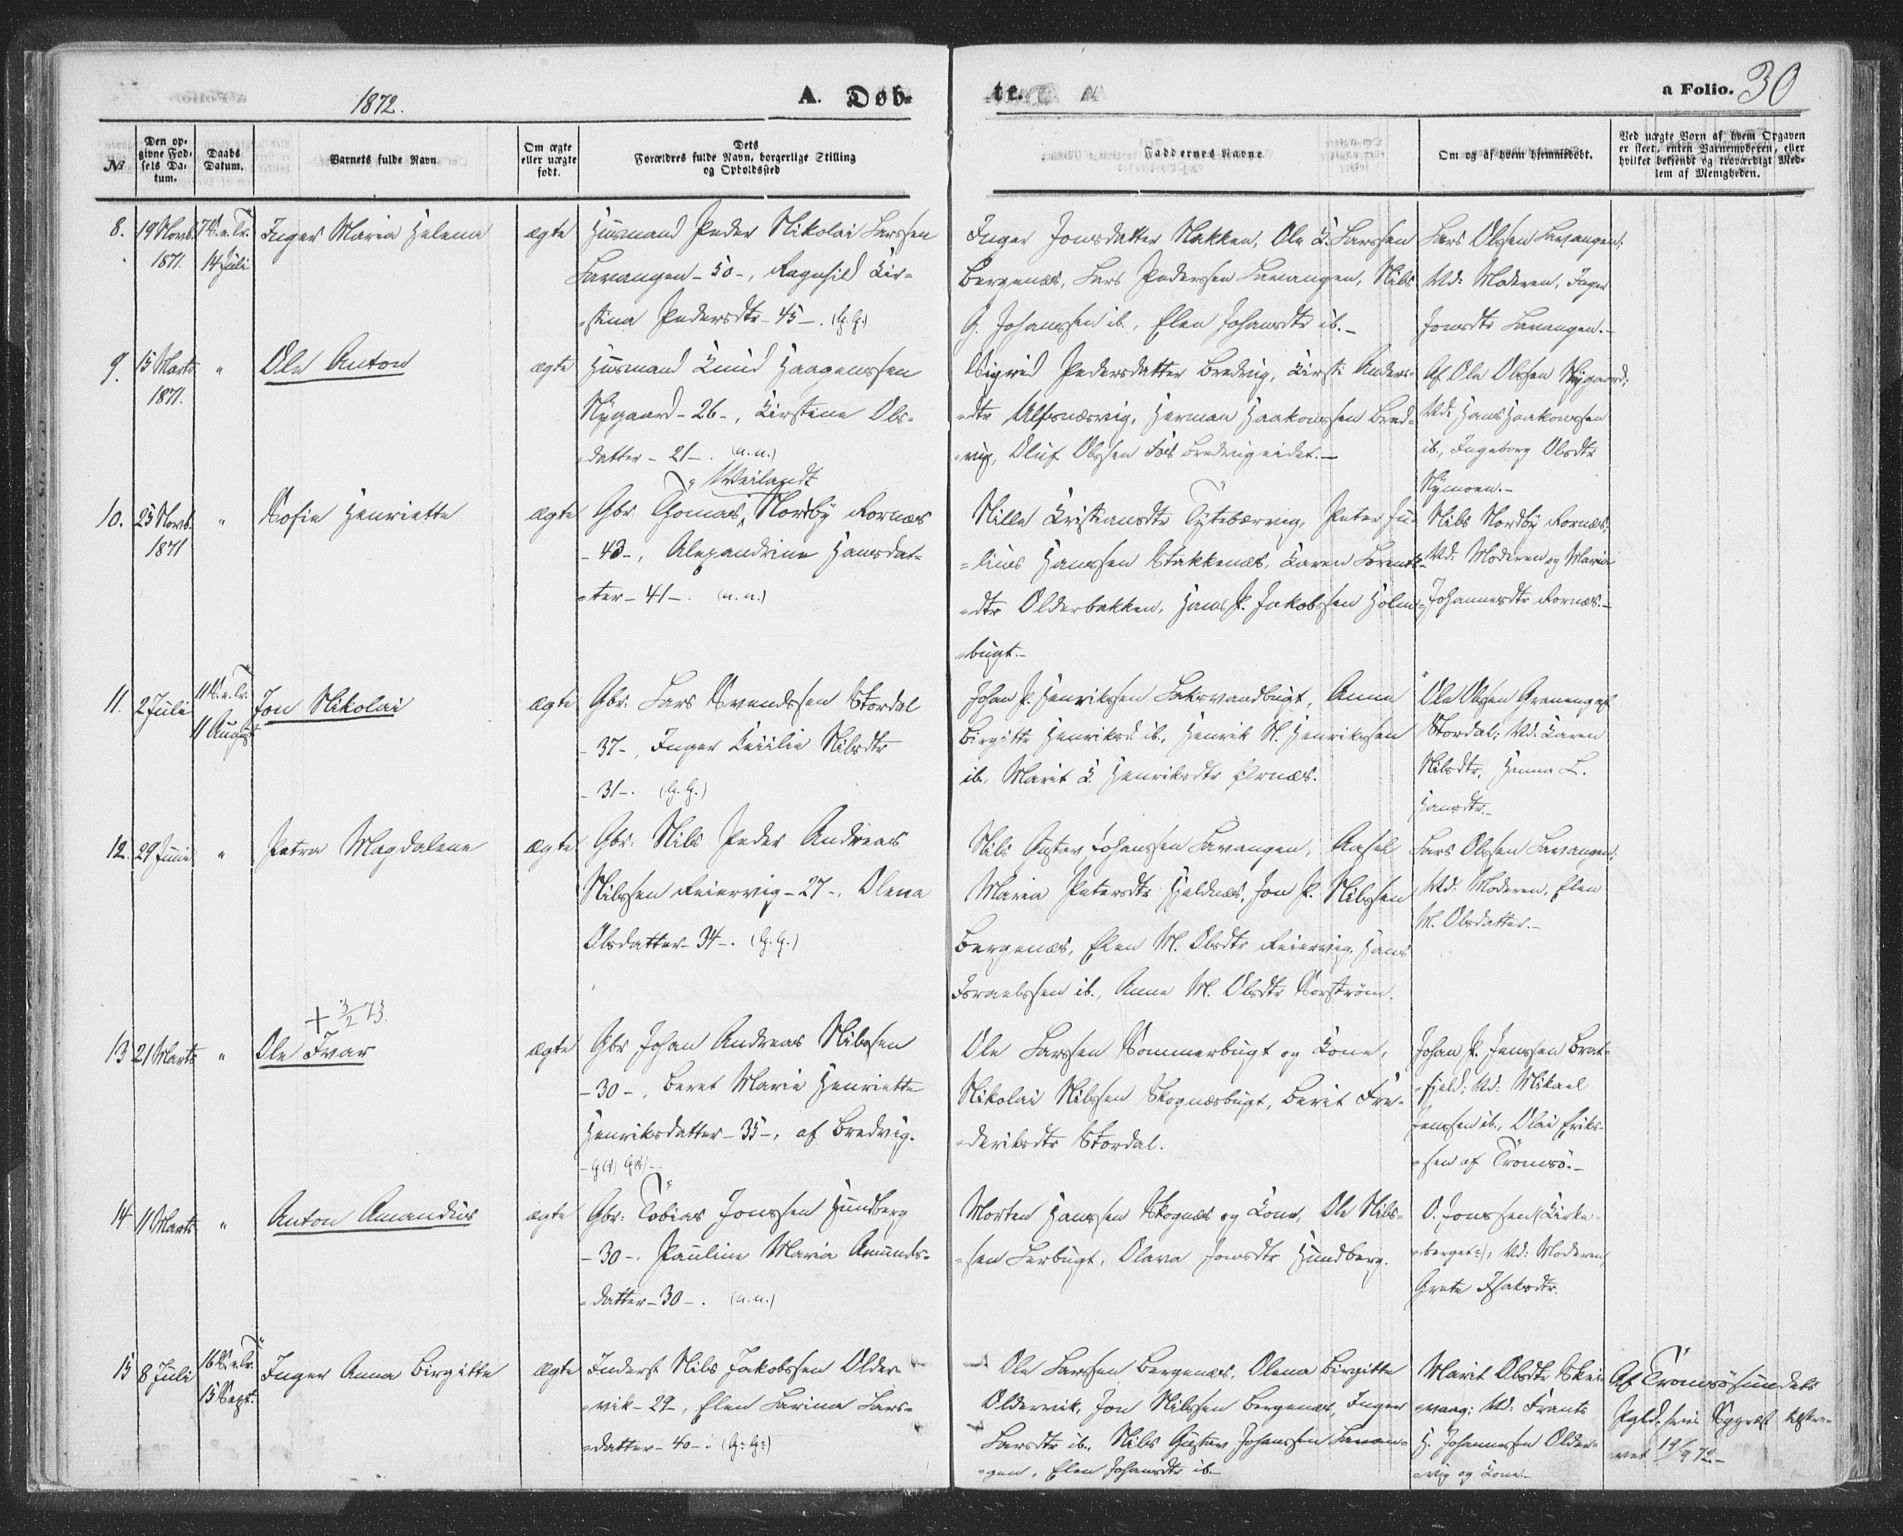 1872.
A. Døb-
te.
a Folio. 30
№
Den op-
givne Fød-
sels Da-
tum.
Daabs
Datum.
Barnets fulde Navn.
Om ægte
eller uægte
født.
Dets
Forældres fulde Navn, borgerlige Stilling
og Opholdssted
Faddernes Navne
Om og af hvem hjemmedøbt.
Ved uægte Børn af hvem Opgaven
er skeet, enten Barnemoderen, eller
hvilket bekjendt og troværdigt Med-
lem af Menigheden.
8.
19 Novb.
1871.
7 S. e. Tr.
14 Juli
Inger Maria Helena
ægte
Husmand Peder Nikolai Larssen
Lavangen - 50 -, Ragnhild Kir-
stina Pedersdtr - 45 -. (G. G.)
Inger Jonsdatter Nakken, Ole K. Larssen
Bergenæs, Lars Pedersen Lavangen, Nils
G. Johanssen ib., Elen Johansdtr ib. -
Lars Olssen Lavangen;
Vd: Moderen, Inger
Jonsdtr Lavangen. -
9.
15 Marts
1871.
"
Ole Anton
ægte
Husmand Knud Haagenssen
Nygaard - 26 -, Kirstine Ols-
datter - 21 -. (n. n.)
Sigrid Pedersdatter Bredvig, Kirsti Anders-
dtr Ulfsnæsvig, Herman Haakonssen Bred-
vig, Oluf Olssen Bredvigeidet. -
Af Ole Olssen Nygaard;
Vd: Hans Haakonssen
ib., Ingeborg Olsdtr
Nymoen. -
10.
25 Novb.
1871
"
Sofie Henriette
ægte
Weilandt
Gbr Thomas Nordby Fornæs
- 43 -, Alexandrine Hansdat-
ter - 41 -. (n. n.)
Nille Kristiansdtr Tyttebærvig, Peter Ju-
lius Hanssen Stakkenæs, Karen Lorents-
dtr Olderbakken, Hans P. Jakobssen Holm-
bugt. -
Nils Nordby Fornæs;
Vd: Moderen og Maria
Johannesdtr Fornæs. -
11.
2 Juli
11 S. e. Tr.
11 August
Jon Nikolai
ægte
Gbr: Lars Svendssen Stordal
- 37 -, Inger Cecilie Nilsdtr
- 31 -. (G. G.)
Johan P. Henrikssen Laksvandbugt, Anne
Birgitte Henriksd. ib., Henrik N. Henrikssen
ib. Marit K. Henriksdtr Elvnæs.
Ole Olssen Grøneng af
Stordal; Vd. Karen
Nilsdtr, Hanna L.
Hansdtr. -
12.
29 Juni
"
Petra Magdalene
ægte
Gbr: Nils Peder Andreas
Nilssen Reiervig - 27 -. Olena
Olsdatter - 34 -. (G. G.)
Nils Gustav Johanssen Lavangen, Aasel
Maria Petersdtr Hjeldnæs, Jon P. Nilssen
Bergenæs, Elen M. Olsdtr Reiervig. Hans
Israelssen ib., Anne M. Olsdtr Sørstrøm.
Lars Olssen Lavangen;
Vd: Moderen, Elen
M. Olsdatter. -
13
21 Marts
"
+ 3/2 73.
Ole Ivar
ægte
Gbr Johan Andreas Nilssen
- 30 -. Beret Marie Henriette
Henriksdatter - 35 -, af Bredvig.
Ole Larssen Sommerbugt og Kone,
Nikolai Nilssen Skognæsbugt, Berit Fre-
deriksdtr Stordal.
Johan P. Jenssen Brat-
fjeld; Vd: Mikael
Jenssen ib., Olai Eriks-
sen af Tromsø. -
14
11 Marts
"
Anton Amandus
ægte
Gbr: Tobias Jonssen Hundberg
- 30 -. Pauline Maria Amunds-
datter - 30 -. (n. n.)
Morten Hanssen Skognæs og Kone, Ole Nils-
sen Lerbugt, Olava Jonsdtr Hundberg.
O. Jonssen (Kirke-
berget), Vd: Moderen,
Grete Isaksdtr.
15
8 Juli
16 S. e. Tr.
15 Sept.
Inger Anna Birgitte
ægte
Inderst Nils Jakobssen Older-
vik - 29 -, Elen Larina Lars-
datter - 40 -. (G: G:)
Ole Larssen Bergenæs, Olena Birgitte
Oldervik, Jon Nilssen Bergenæs, Inger
Larsdtr ib., Nils Gustav Johanssen Lavan-
gen, Elen Johansdtr ib. -
Marit Olsdtr Skei-
vaag; Vd: Frants
H. Johannessen Older-
vig og Kone. -
Af Tromsøsundets
19/9 72. -